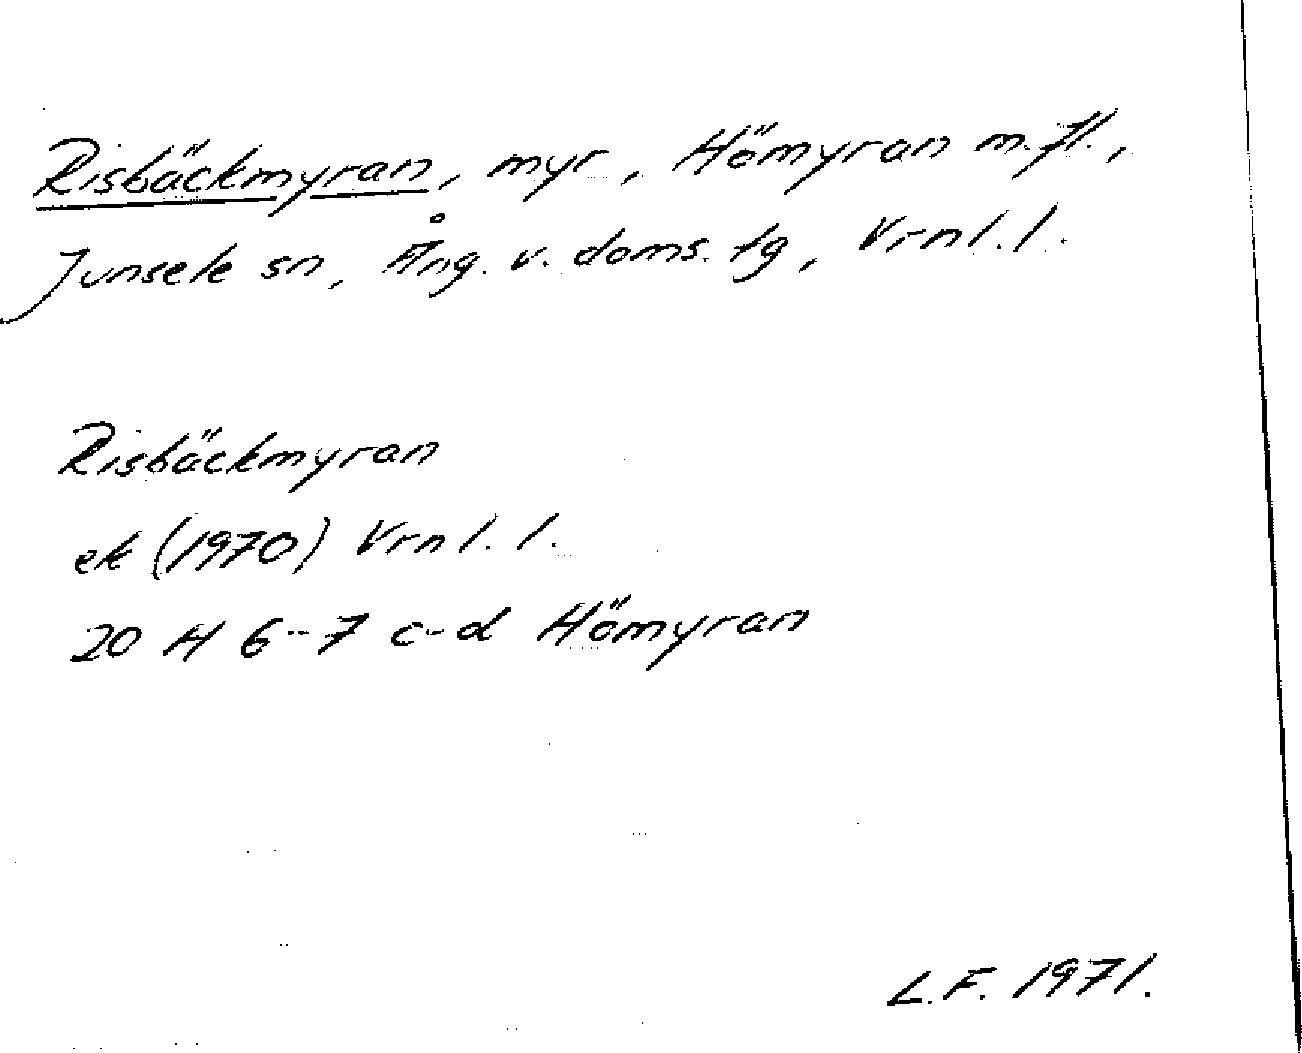 Risbäckmyran, myr, Hömyran m.fl.,
Junsele sn, Ång. v. doms. tg, Vrnl. l.
Risbäckmyran
ek (1970) Vrnl. l.
20 H 6-7 c-d Hömyran
L.F. 1971.